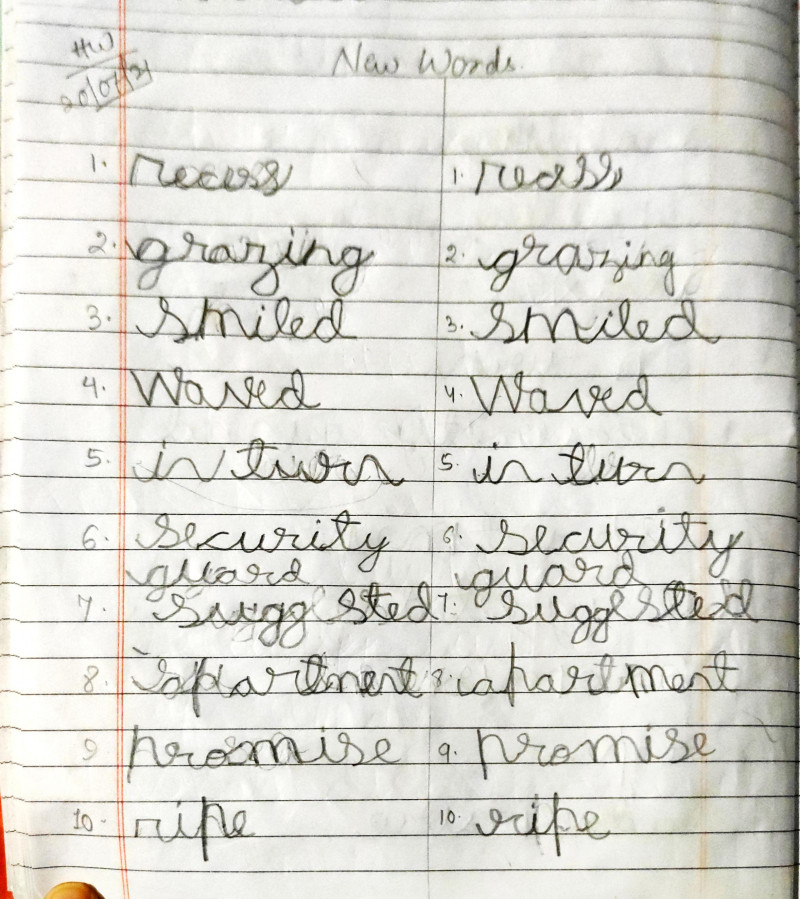 HW
20/07/21
New Words.
1. recess 1. recess
2. grazing 2. grazing
3. Smiled 3. Smiled
4. Waved 4. Waved
5. in turn 5. in turn
6. Security 6. Security
guard guard
7. Suggested 7. Suggested
8. apartment 8. apartment
9 promise 9. promise
10. ripe 10. ripe